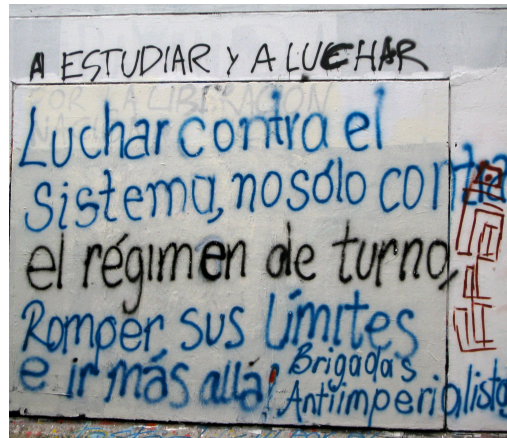 A ESTUDIAR Y A LUCHAR
POR LA LIBERACIÓN
Luchar contra el
sistema, no sólo contra
el régimen de turno,
Romper sus límites
e ir más allá!
Brigadas
Antiimperialistas